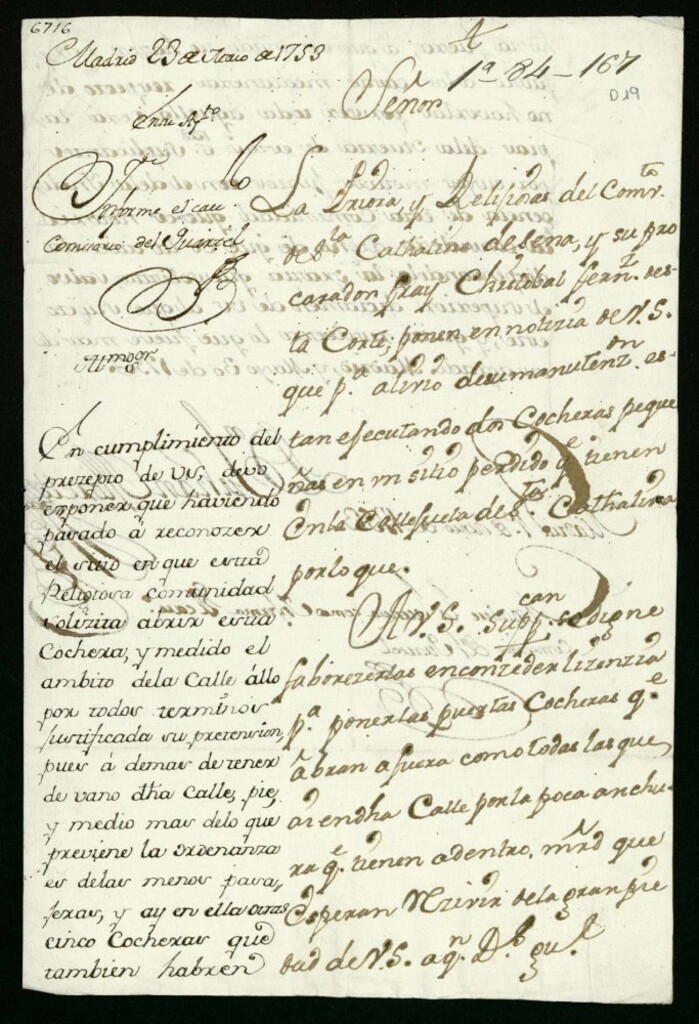 6716
Madrid 23 de Junio de 1753
1ª 84-167
D19
Señor
En su Ayto
Informe el cau.º
Comisario del Quartel
Almoor
La Priora, y Relijiosas del Combto
de Sta Cathalina de sena, y su pro
curador fray Christobal fern.z des-
ta Corte; ponen en notizia de V.S.
que pª alivio de su manutenz.on es-
tan ejecutando dos Cocheras peque
ñas en vn sitio perdido q.e tienen
en la Callejuela de S.ta Cathalina
por lo que.
A V.S. Supp.can se digne
faborezerlas en conzeder lizenzia
pª poner las puertas Cocheras q.e
abran a fuera como todas las que
ai en dha Calle por la poca anchu-
ra q.e tienen adentro. mrd que
esperan Rzivir de la gran pie
dad de V.S. a q.n D.s gu.e
En cumplimiento del
prezepto de VS, devo
exponer que haviendo
pasado à reconozer
el sitio en que esta
Relijiosa comunidad
solizita abrir esta
Cochera, y medido el
ambito dela Calle allo
por todos terminos
justificada su pretension,
pues à demas de tener
de vano dtha Calle, pie,
y medio mas delo que
previene la ordenanza
es delas menos pasa,
jeras, y ay en ella otras
cinco Cocheras que
tambien habren